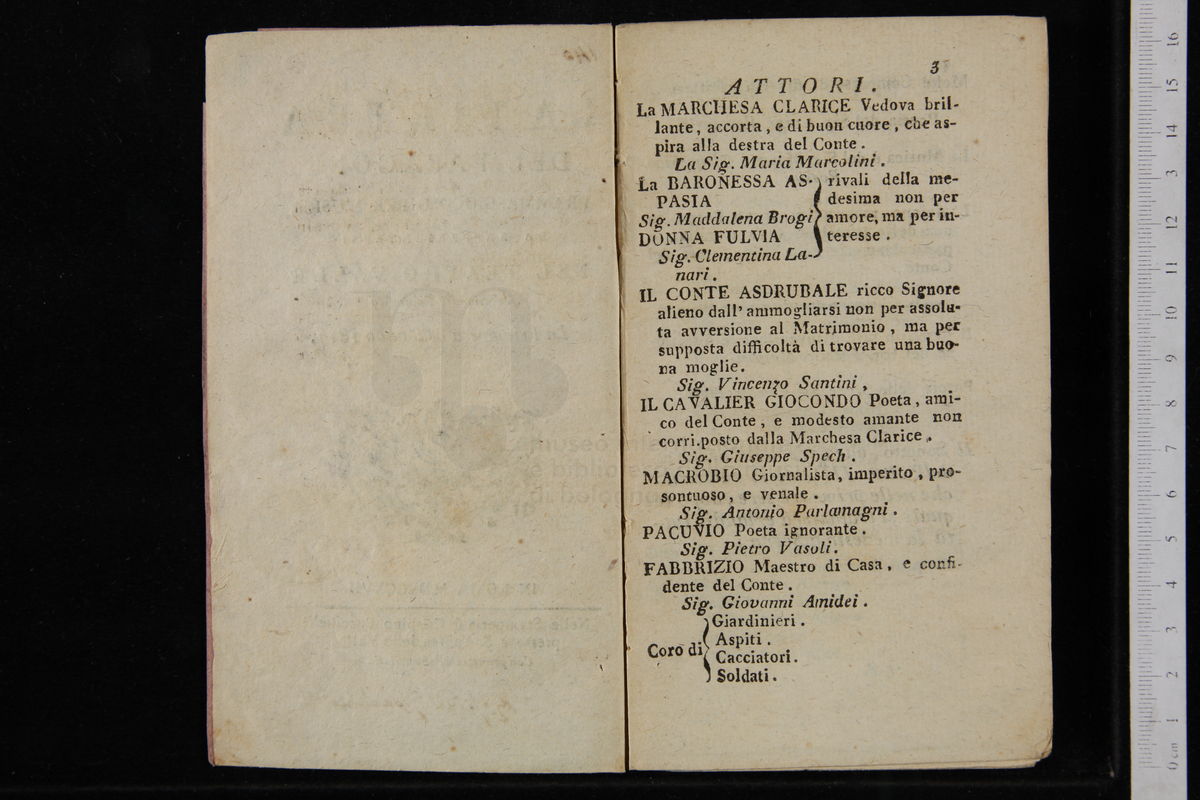 3
ATTORI.
La MARCHESA CLARICE Vedova bril-
lante, accorta, e di buon cuore, che as-
pira alla destra del Conte.
La Sig. Maria Marcolini.
La BARONESSA AS- rivali della me-
PASIA desima non per
Sig. Maddalena Brogi amore, ma per in-
DONNA FULVIA teresse.
Sig. Clementina La-
nari.
IL CONTE ASDRUBALE ricco Signore
alieno dall' ammogliarsi non per assolu-
ta avversione al Matrimonio, ma per
supposta difficoltà di trovare una buo-
na moglie.
Sig. Vincenzo Santini,
IL CAVALIER GIOCONDO Poeta, ami-
co del Conte, e modesto amante non
corri.posto dalla Marchesa Clarice.
Sig. Giuseppe Spech.
MACROBIO Giornalista, imperito, pro-
sontuoso, e venale.
Sig. Antonio Parlamagni.
PACUVIO Poeta ignorante.
Sig. Pietro Vasoli.
FABBRIZIO Maestro di Casa, e confi-
dente del Conte.
Sig. Giovanni Amidei.
Coro di Giardinieri.
Aspiti.
Cacciatori.
Soldati.
museo
e biblio
di bologna
0 cm 1 2 3 4 5 6 7 8 9 10 11 12 13 14 15 16